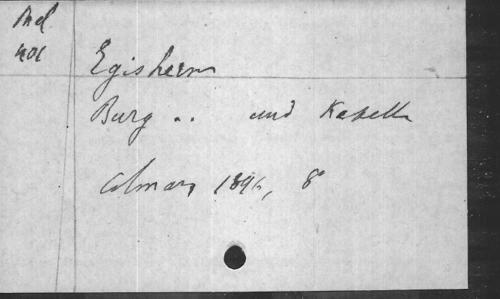 Md
401
Egisheim
Burg .. und Kapelle
Colmar, 1896, 8°